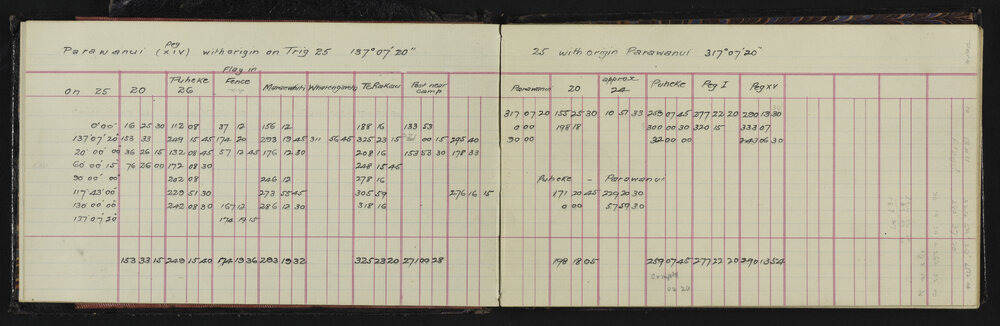 Parawanui (Peg XIV) with origin on Trig 25 137°07'20"
Flag in
on 25 20 Puheke 26 Fence Te Rakau Post near camp
0°00' 16 25 30 112 08 37 12 156 12 188 16 133 53
137°07'20" 153 33 249 15 45 174 20 293 19 45 311 56 45 325 23 15 00 15 295 40
20°00'00" 36 26 15 132 08 45 57 12 45 176 12 30 208 16 153 53 30 178 33
60°00'15" 76 26 00 172 08 30 248 15 45
90°00'00" 202 08 246 12 278 16
117°43'00" 229 51 30 273 55 45 305 59 276 16 15
130°00'00" 242 08 30 167 12 286 12 30 318 16
137°07'20" 174 19 15
153 33 15 249 15 40 174 19 36 293 19 32 325 23 20 271 00 28
25 with origin Parawanui 317°07'20"
Parawanui 20 approx 24 Puheke Peg I Peg XV
317 07 20 155 25 30 10 51 33 259 07 45 277 22 20 290 13 30
0 00 198 18 300 00 30 320 15 333 07
90 00 32 00 00 243 06 30
Puheke - Parawanui
171 20 45 229 20 30
0 00 57 59 30
198 18 05 259 07 45 277 22 20 290 13 54